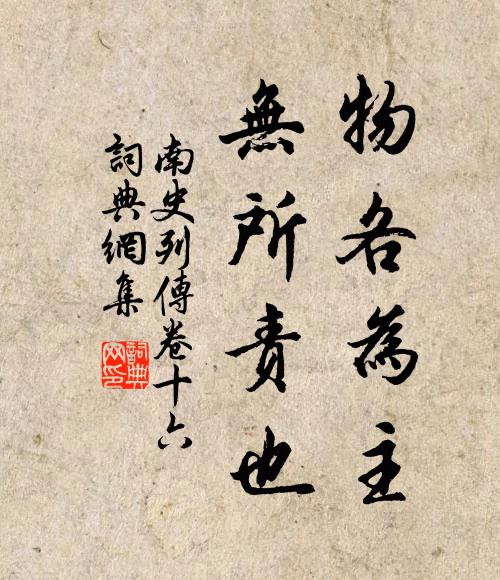 物各為主
無所責也
南史列傳卷十六
詞典網集
詞典
网印